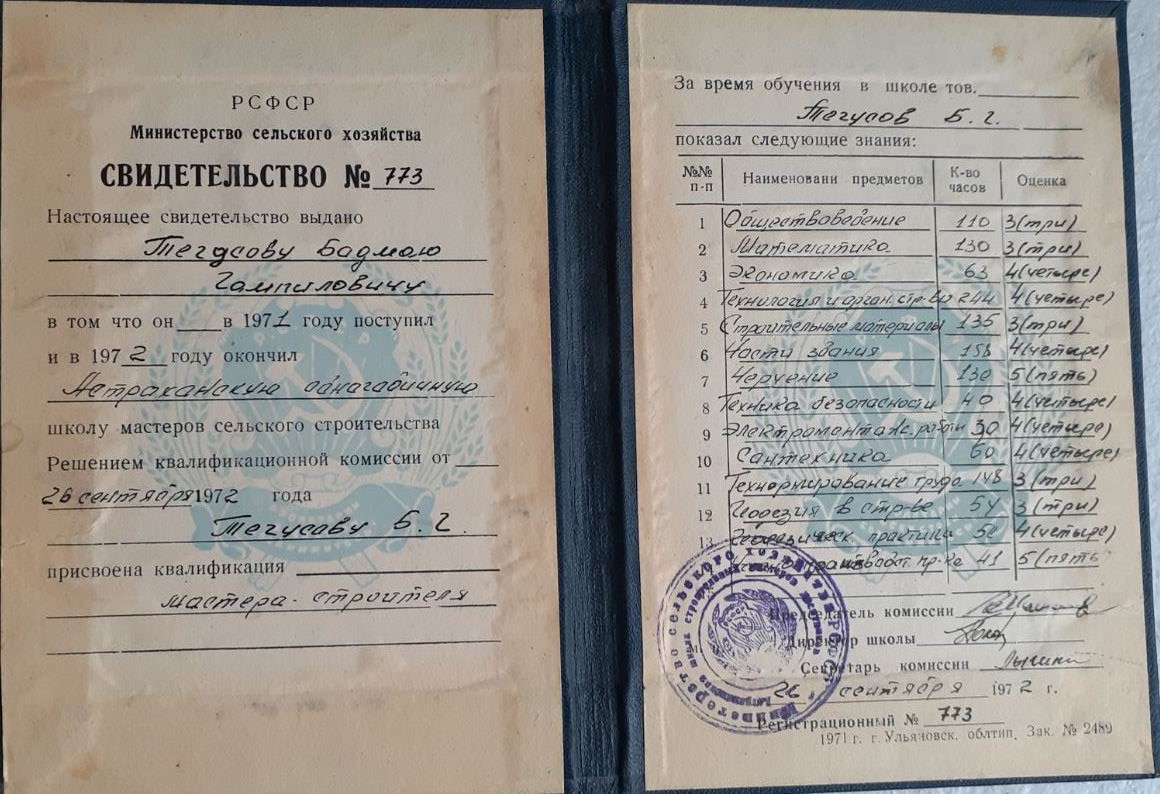 РСФСР
Министерство сельского хозяйства
СВИДЕТЕЛЬСТВО № 773
Настоящее свидетельство выдано
Тегусову Бадмаю
Гампиловичу
в том что он в 1971 году поступил
и в 1972 году окончил
Астраханскую одногодичную
школу мастеров сельского строительства
Решением квалификационной комиссии от
26 сентября 1972 года
Тегусову Б. Г.
присвоена квалификация
мастера-строителя
За время обучения в школе тов.
Тегусов Б. Г.
показал следующие знания:
№№ п-п Наименовани предметов К-во часов Оценка
1 Обществоведение 110 3 (три)
2 Математика 130 3 (три)
3 Экономика 63 4 (четыре)
4 Технология и орган. стр-ва 244 4 (четыре)
5 Строительные материалы 135 3 (три)
6 Части здания 158 4 (четыре)
7 Черчение 130 5 (пять)
8 Техника безопасности 40 4 (четыре)
9 Электромонтаж. работы 30 4 (четыре)
10 Сантехника 60 4 (четыре)
11 Технормирование труда 148 3 (три)
12 Геодезия в стр-ве 54 3 (три)
13 практика 50 4 (четыре)
41 5 (пять
Председатель комиссии
Директор школы
Секретарь комиссии
26 сентября 1972 г.
Регистрационный № 773
1971 г. г. Ульяновск. облтип. Зак. № 2489